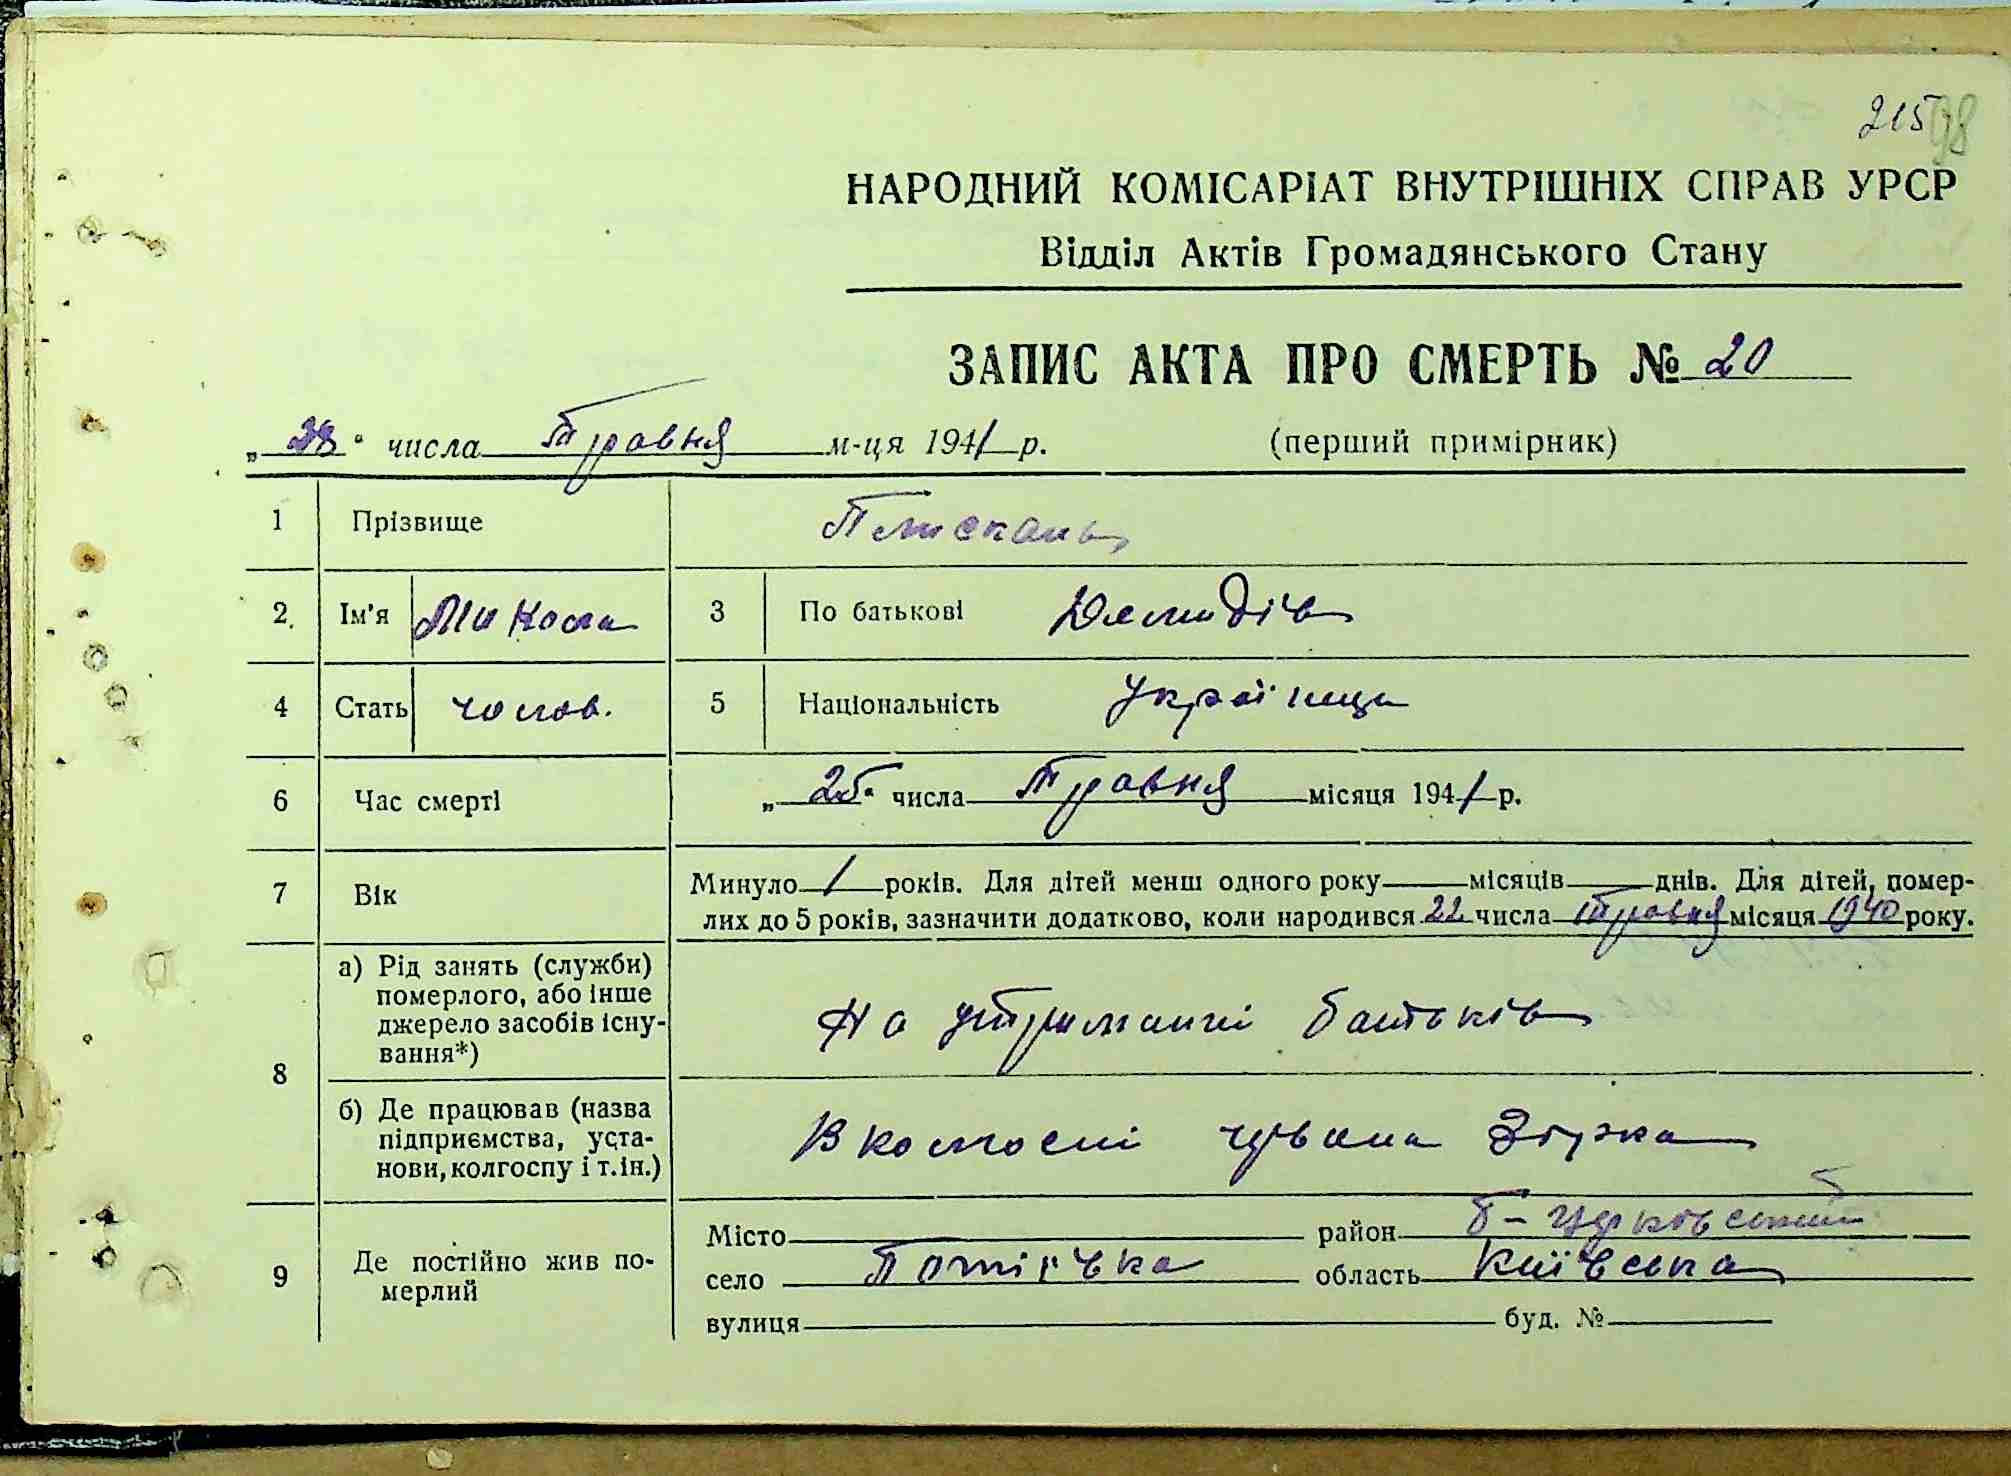 215
98
НАРОДНИЙ КОМІСАРІАТ ВНУТРІШНІХ СПРАВ УРСР
Відділ Актів Громадянського Стану
ЗАПИС АКТА ПРО СМЕРТЬ № 20
„28“ числа Травня м-ця 1941 р.
(перший примірник)
1 Прізвище Плискань
2. Ім'я Микола 3 По батькові Демидів
4 Стать чолов. 5 Національність Українець
6 Час смерті „25“ числа Травня місяця 1941 р.
7 Вік Минуло 1 років. Для дітей менш одного року місяців днів. Для дітей, помер-
лих до 5 років, зазначити додатково, коли народився 22 числа Травня місяця 1940 року.
8 а) Рід занять (служби)
померлого, або інше
джерело засобів існу-
вання*)
На утриманні батьків
б) Де працював (назва
підприємства, уста-
нови, колгоспу і т.ін.)
В колгоспі Зірка
9 Де постійно жив по-
мерлий
Місто район Б-Церковський
село Потіївка область Київська
вулиця буд. №